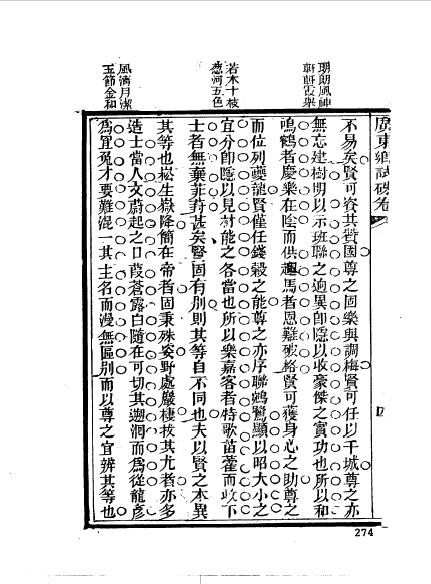 明朗風神
軒軒霞舉
若木十枝
懸河五色
風清月潔
玉節金和
廣東鄉試硃卷
四
不易矣賢可資其贊國尊之固樂與調梅賢可任以干城尊之亦
無忘建樹明以示班聯之逈異即隱以收豪傑之實功也所以和
鳴鶴者慶樂在陰而供趨馬者恩難槪絡賢可獲身心之助尊之
而位列夔龍賢僅任錢穀之能尊之亦序聯鵷鷺顯以昭大小之
宜分即隱以見材能之各當也所以樂嘉客者特歌苗藿而收下
士者無棄菲葑甚矣賢固有別則其等自不同也夫以賢之本異
其等也崧生嶽降簡在帝者固秉殊姿野處巖棲拔其尤者亦多
造士當人文蔚起之日葭蒼露白隨在可切其遡洄而爲從龍彥
爲罝兔才要難混一其主名而漫無區別而以尊之宜辨其等也
274